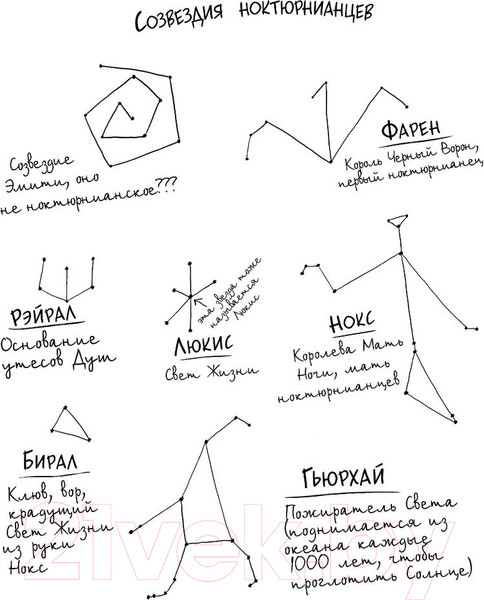 Созвездия ноктюрнианцев
Созвездие
Эмити, оно
не ноктюрнианское???
Фарен
Король Черный Ворон,
первый ноктюрнианец
Рэйрал
Основание
утесов Душ
эта звезда тоже
называется
Люкис
Люкис
Свет Жизни
Нокс
Королева Мать
Ночи, мать
ноктюрнианцев
Бирал
Клюв, вор,
крадущий
Свет Жизни
из руки
Нокс
Гьюрхай
Пожиратель Света
(поднимается из
океана каждые
1000 лет, чтобы
проглотить Солнце)
21vek.by